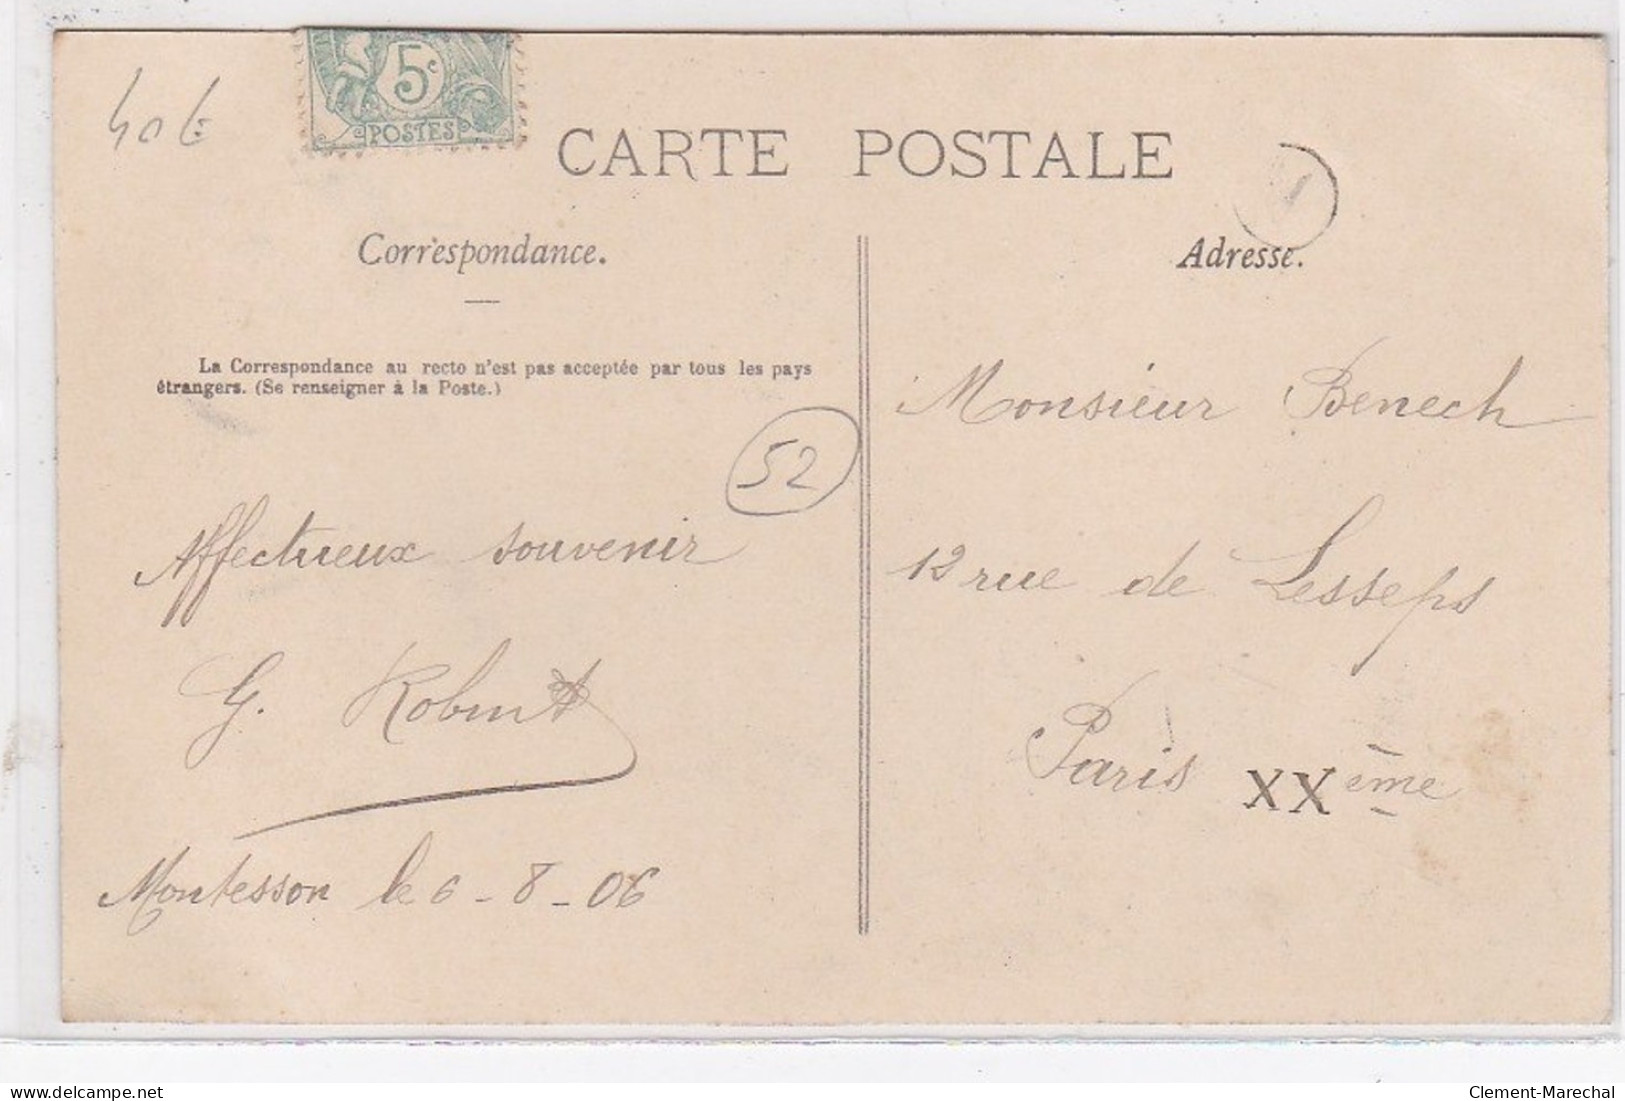 40€
5c
POSTES
CARTE POSTALE
1
Correspondance.
Adresse.
La Correspondance au recto n'est pas acceptée par tous les pays
étrangers. (Se renseigner à la Poste.)
52
Affectueux souvenir
G.
Montesson le 6-8-06
Monsieur Benech
12 rue de Lesseps
Paris XXème
delcampe.net
Clement-Marechal